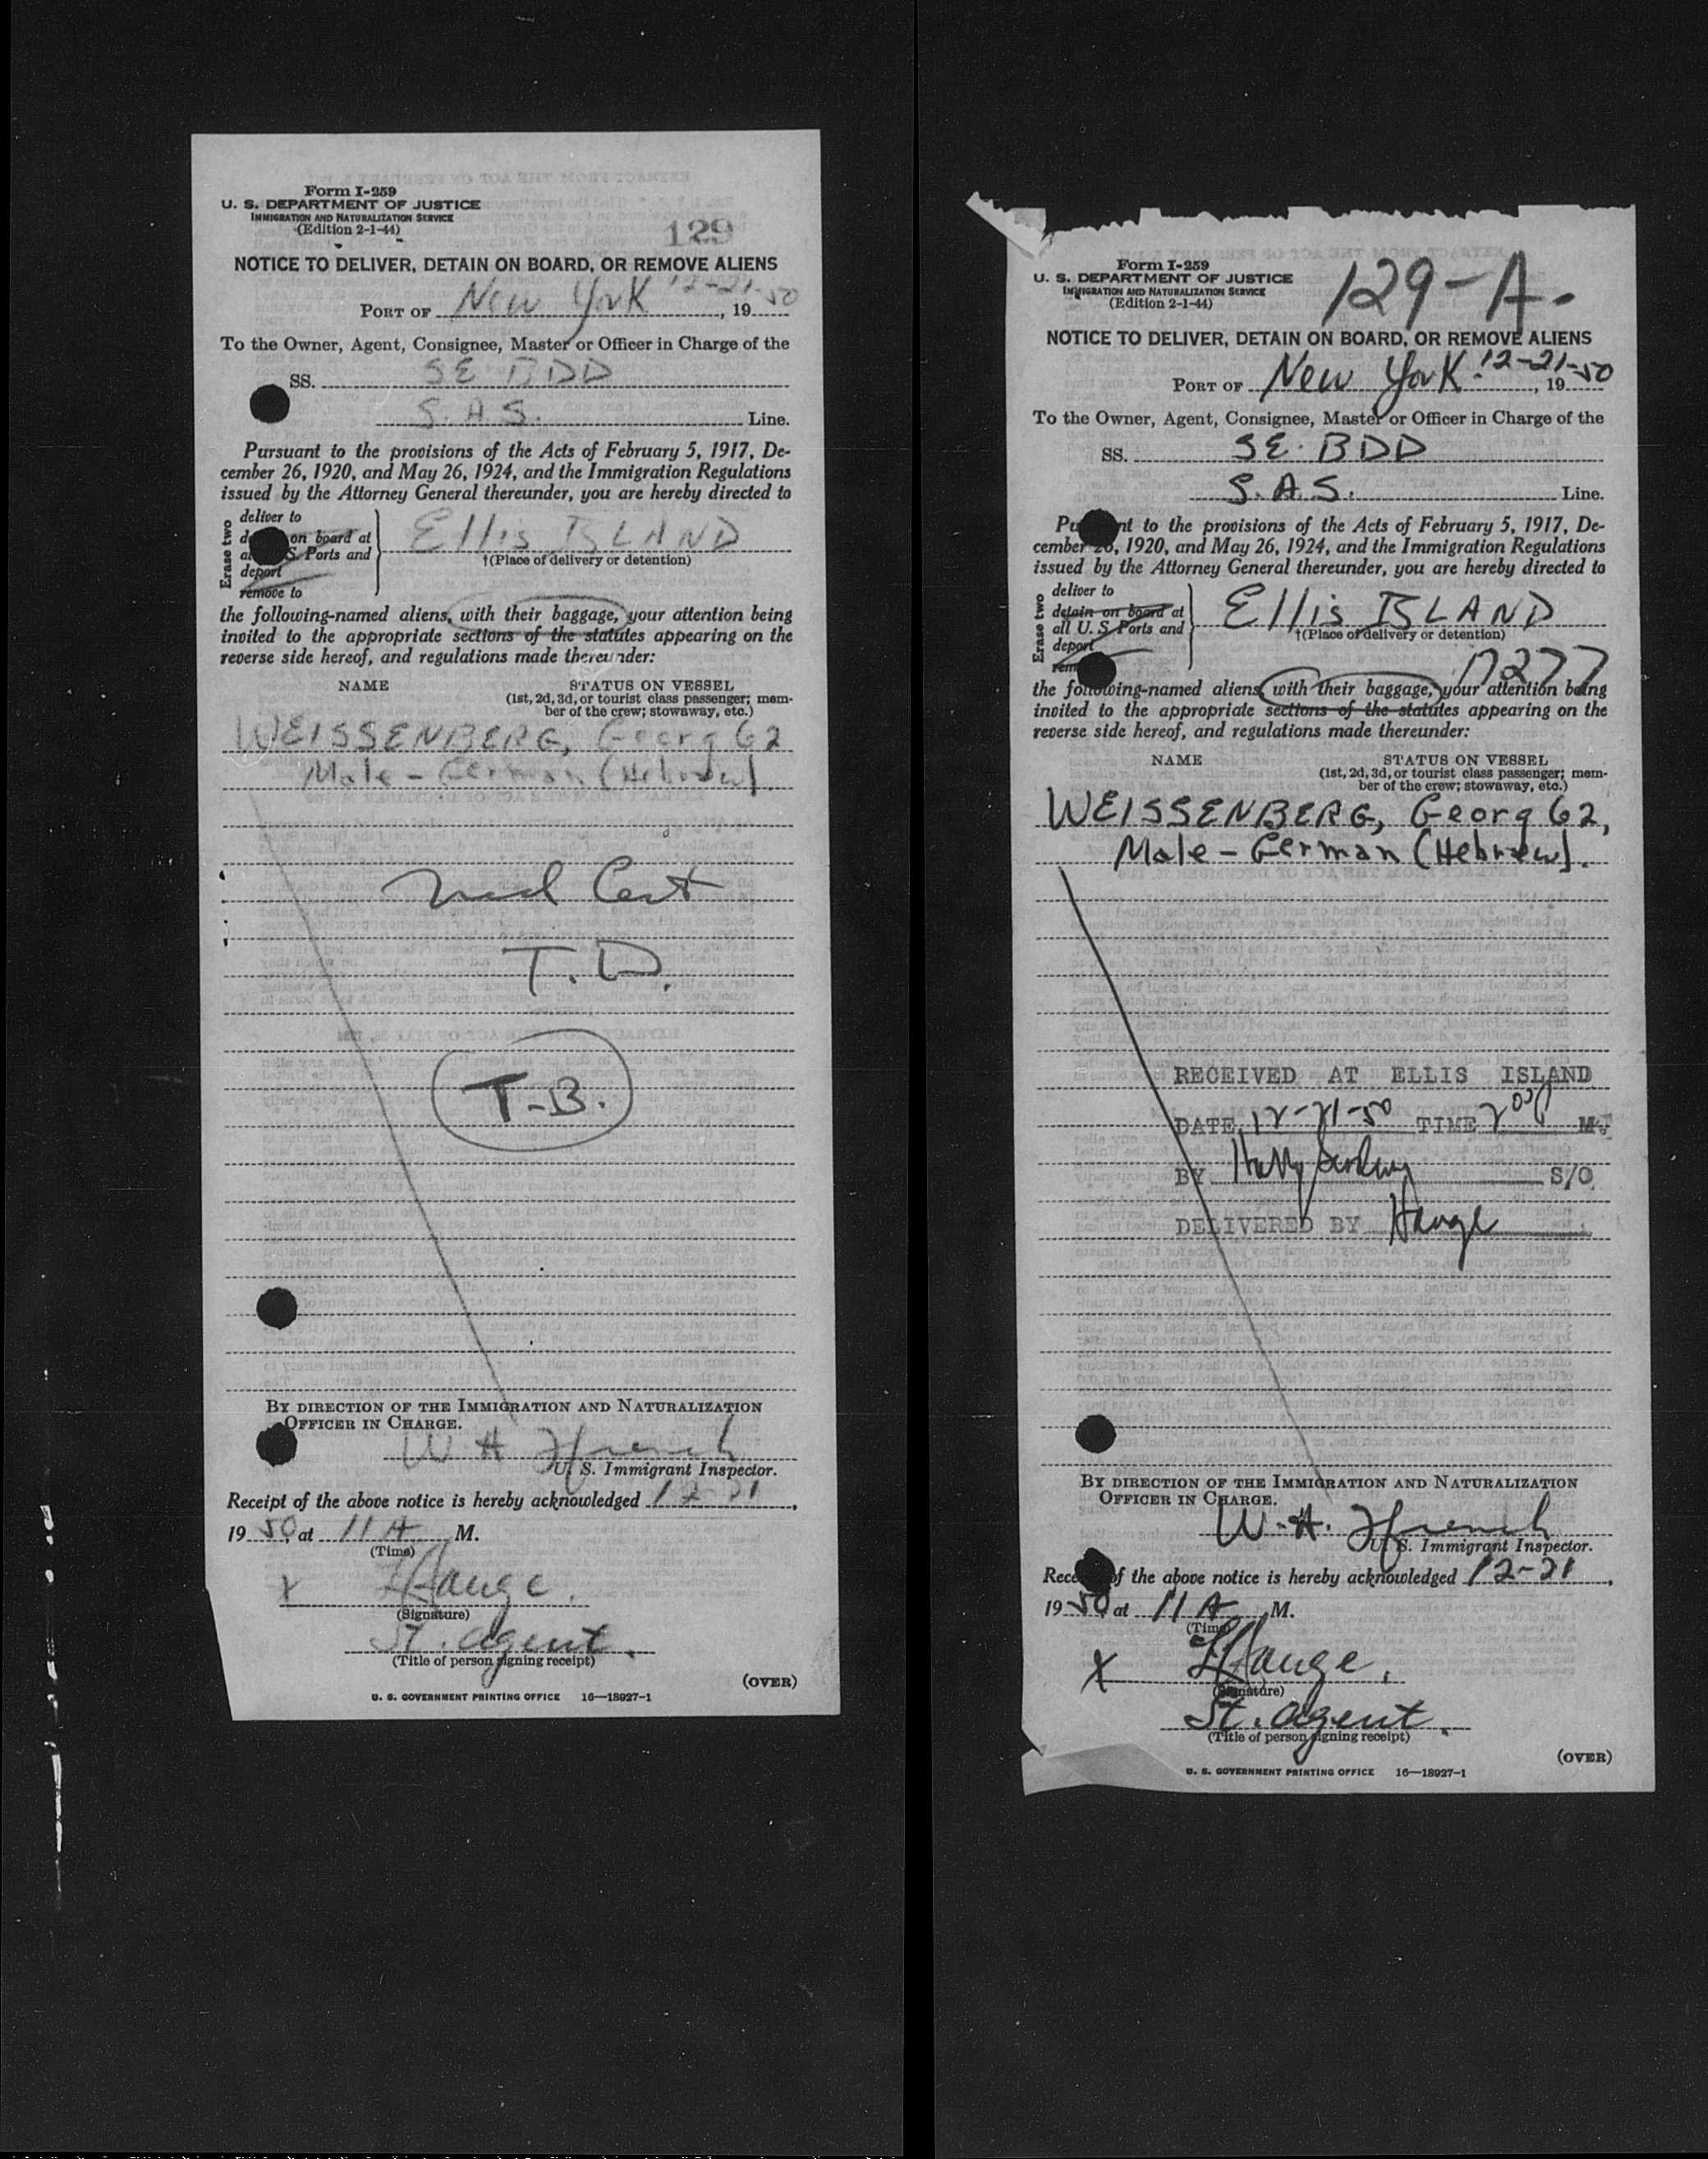 Form I-259
U. S. DEPARTMENT OF JUSTICE
IMMIGRATION AND NATURALIZATION SERVICE
(Edition 2-1-44)
129
NOTICE TO DELIVER, DETAIN ON BOARD, OR REMOVE ALIENS
PORT OF New York 12-21-50, 19
To the Owner, Agent, Consignee, Master or Officer in Charge of the
SS. SE BDD
S.A.S. Line.
Pursuant to the provisions of the Acts of February 5, 1917, De-
cember 26, 1920, and May 26, 1924, and the Immigration Regulations
issued by the Attorney General thereunder, you are hereby directed to
Erase two
deliver to
on board at
S. Ports and
deport
remove to
Ellis ISLAND
†(Place of delivery or detention)
the following-named aliens, with their baggage, your attention being
invited to the appropriate sections of the statutes appearing on the
reverse side hereof, and regulations made thereunder:
NAME STATUS ON VESSEL
(1st, 2d, 3d, or tourist class passenger; mem-
ber of the crew; stowaway, etc.)
WEISSENBERG, Georg 62
Male - German (Hebrew).
Med Cert
T.D.
T.B.
BY DIRECTION OF THE IMMIGRATION AND NATURALIZATION
OFFICER IN CHARGE.
W H French
U. S. Immigrant Inspector.
Receipt of the above notice is hereby acknowledged 12-21,
19 50, at 11 A M.
(Time)
x Hauge.
(Signature)
St. agent.
(Title of person signing receipt)
(OVER)
U. S. GOVERNMENT PRINTING OFFICE 16—18927-1
Form I-259
U. S. DEPARTMENT OF JUSTICE
IMMIGRATION AND NATURALIZATION SERVICE
(Edition 2-1-44)
129-A.
NOTICE TO DELIVER, DETAIN ON BOARD, OR REMOVE ALIENS
PORT OF New York. 12-21-50, 19
To the Owner, Agent, Consignee, Master or Officer in Charge of the
SS. SE. BDD
S.A.S. Line.
Pursuant to the provisions of the Acts of February 5, 1917, De-
cember 26, 1920, and May 26, 1924, and the Immigration Regulations
issued by the Attorney General thereunder, you are hereby directed to
Erase two
deliver to
detain on board at
all U. S. Ports and
deport
Ellis ISLAND
†(Place of delivery or detention)
the following-named aliens, with their baggage, your attention being
invited to the appropriate sections of the statutes appearing on the
reverse side hereof, and regulations made thereunder:
NAME STATUS ON VESSEL
(1st, 2d, 3d, or tourist class passenger; mem-
ber of the crew; stowaway, etc.)
WEISSENBERG, Georg 62,
Male - German (Hebrew).
RECEIVED AT ELLIS ISLAND
DATE 12-21-50 TIME 2 00 P M.
BY S/O
DELIVERED BY Hauge
BY DIRECTION OF THE IMMIGRATION AND NATURALIZATION
OFFICER IN CHARGE.
W. H. French
U. S. Immigrant Inspector.
Receipt of the above notice is hereby acknowledged 12-21,
19 50, at 11 A M.
(Time)
x Hauge.
(Signature)
St. agent.
(Title of person signing receipt)
(OVER)
U. S. GOVERNMENT PRINTING OFFICE 16—18927-1